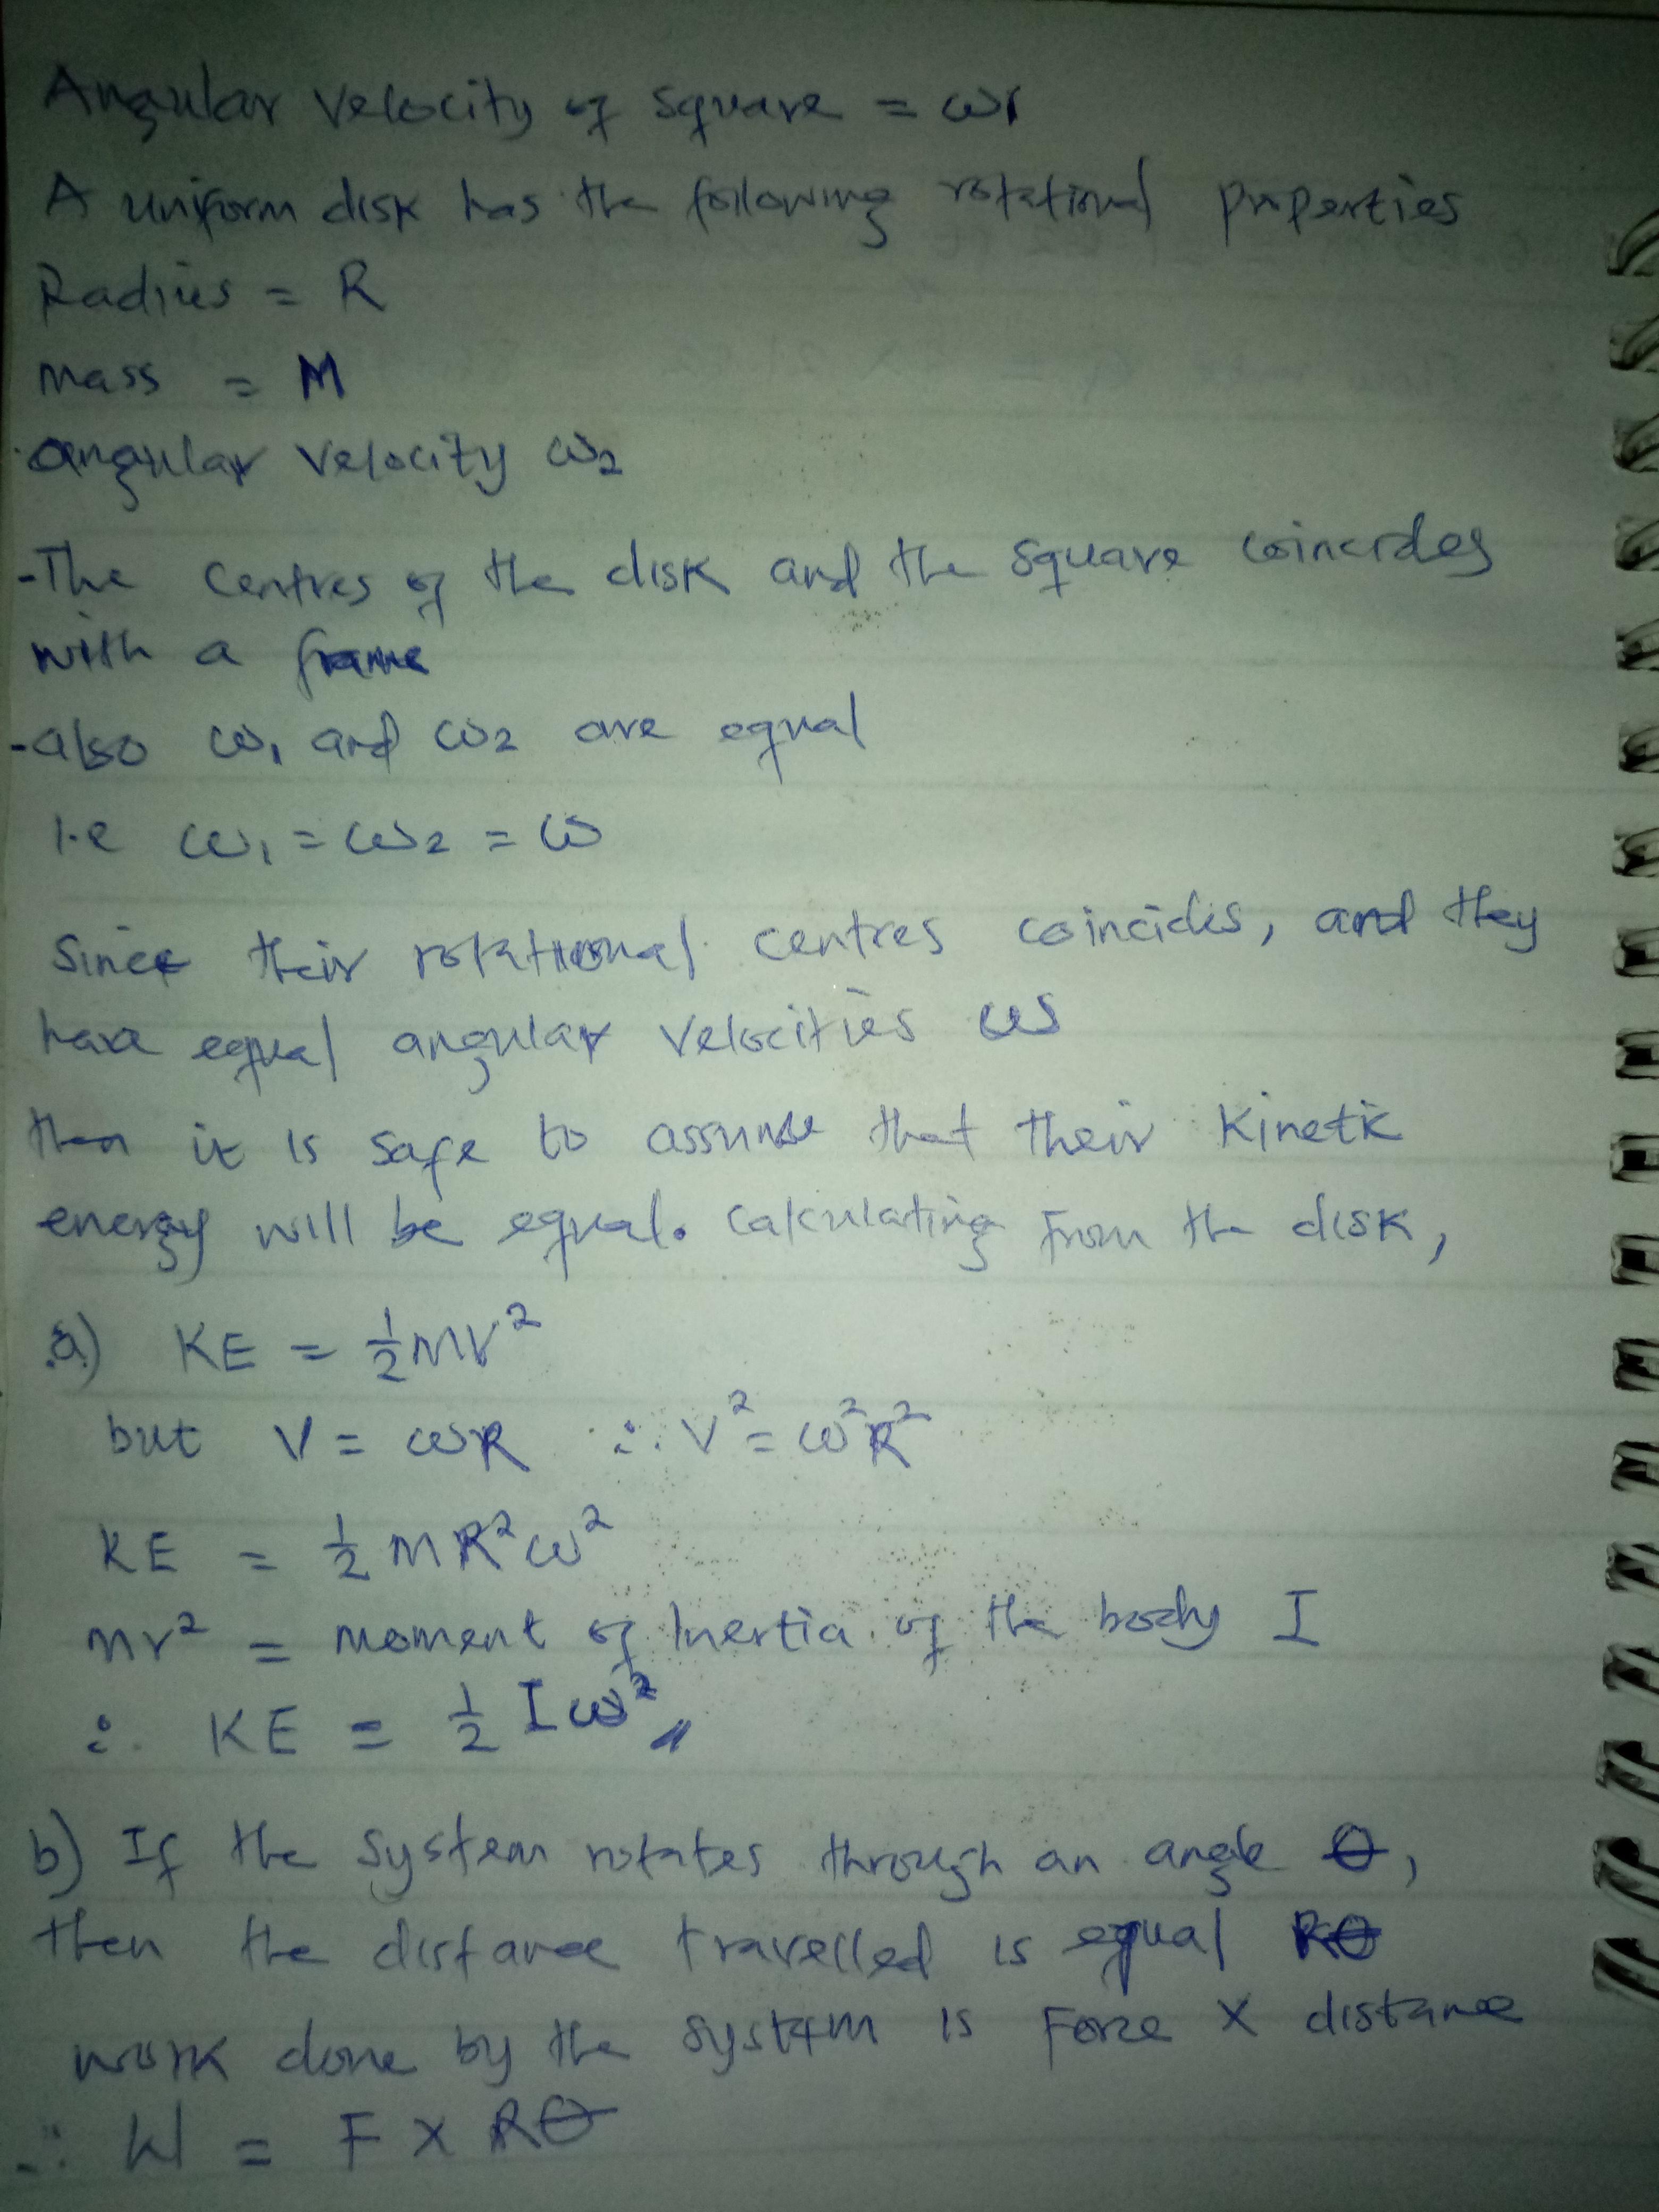 Angular Velocity of square = ω1
A uniform disk has the following rotational properties
Radius = R
mass = M
angular velocity ω2
-The Centres of the disk and the square coincides
with a frame
-also ω1 and ω2 are equal
i.e ω1 = ω2 = ω
Since their rotational centres coincides, and they
have equal angular velocities ω
then it is safe to assume that their Kinetic
energy will be equal. Calculating from the disk,
a) KE = ½MV²
but V = ωR ∴ V² = ω²R²
KE = ½ MR²ω²
mr² = moment of Inertia of the body I
∴ KE = ½ Iω²
b) If the system rotates through an angle θ,
then the distance travelled is equal Rθ
work done by the system is Force X distance
∴ W = F X Rθ